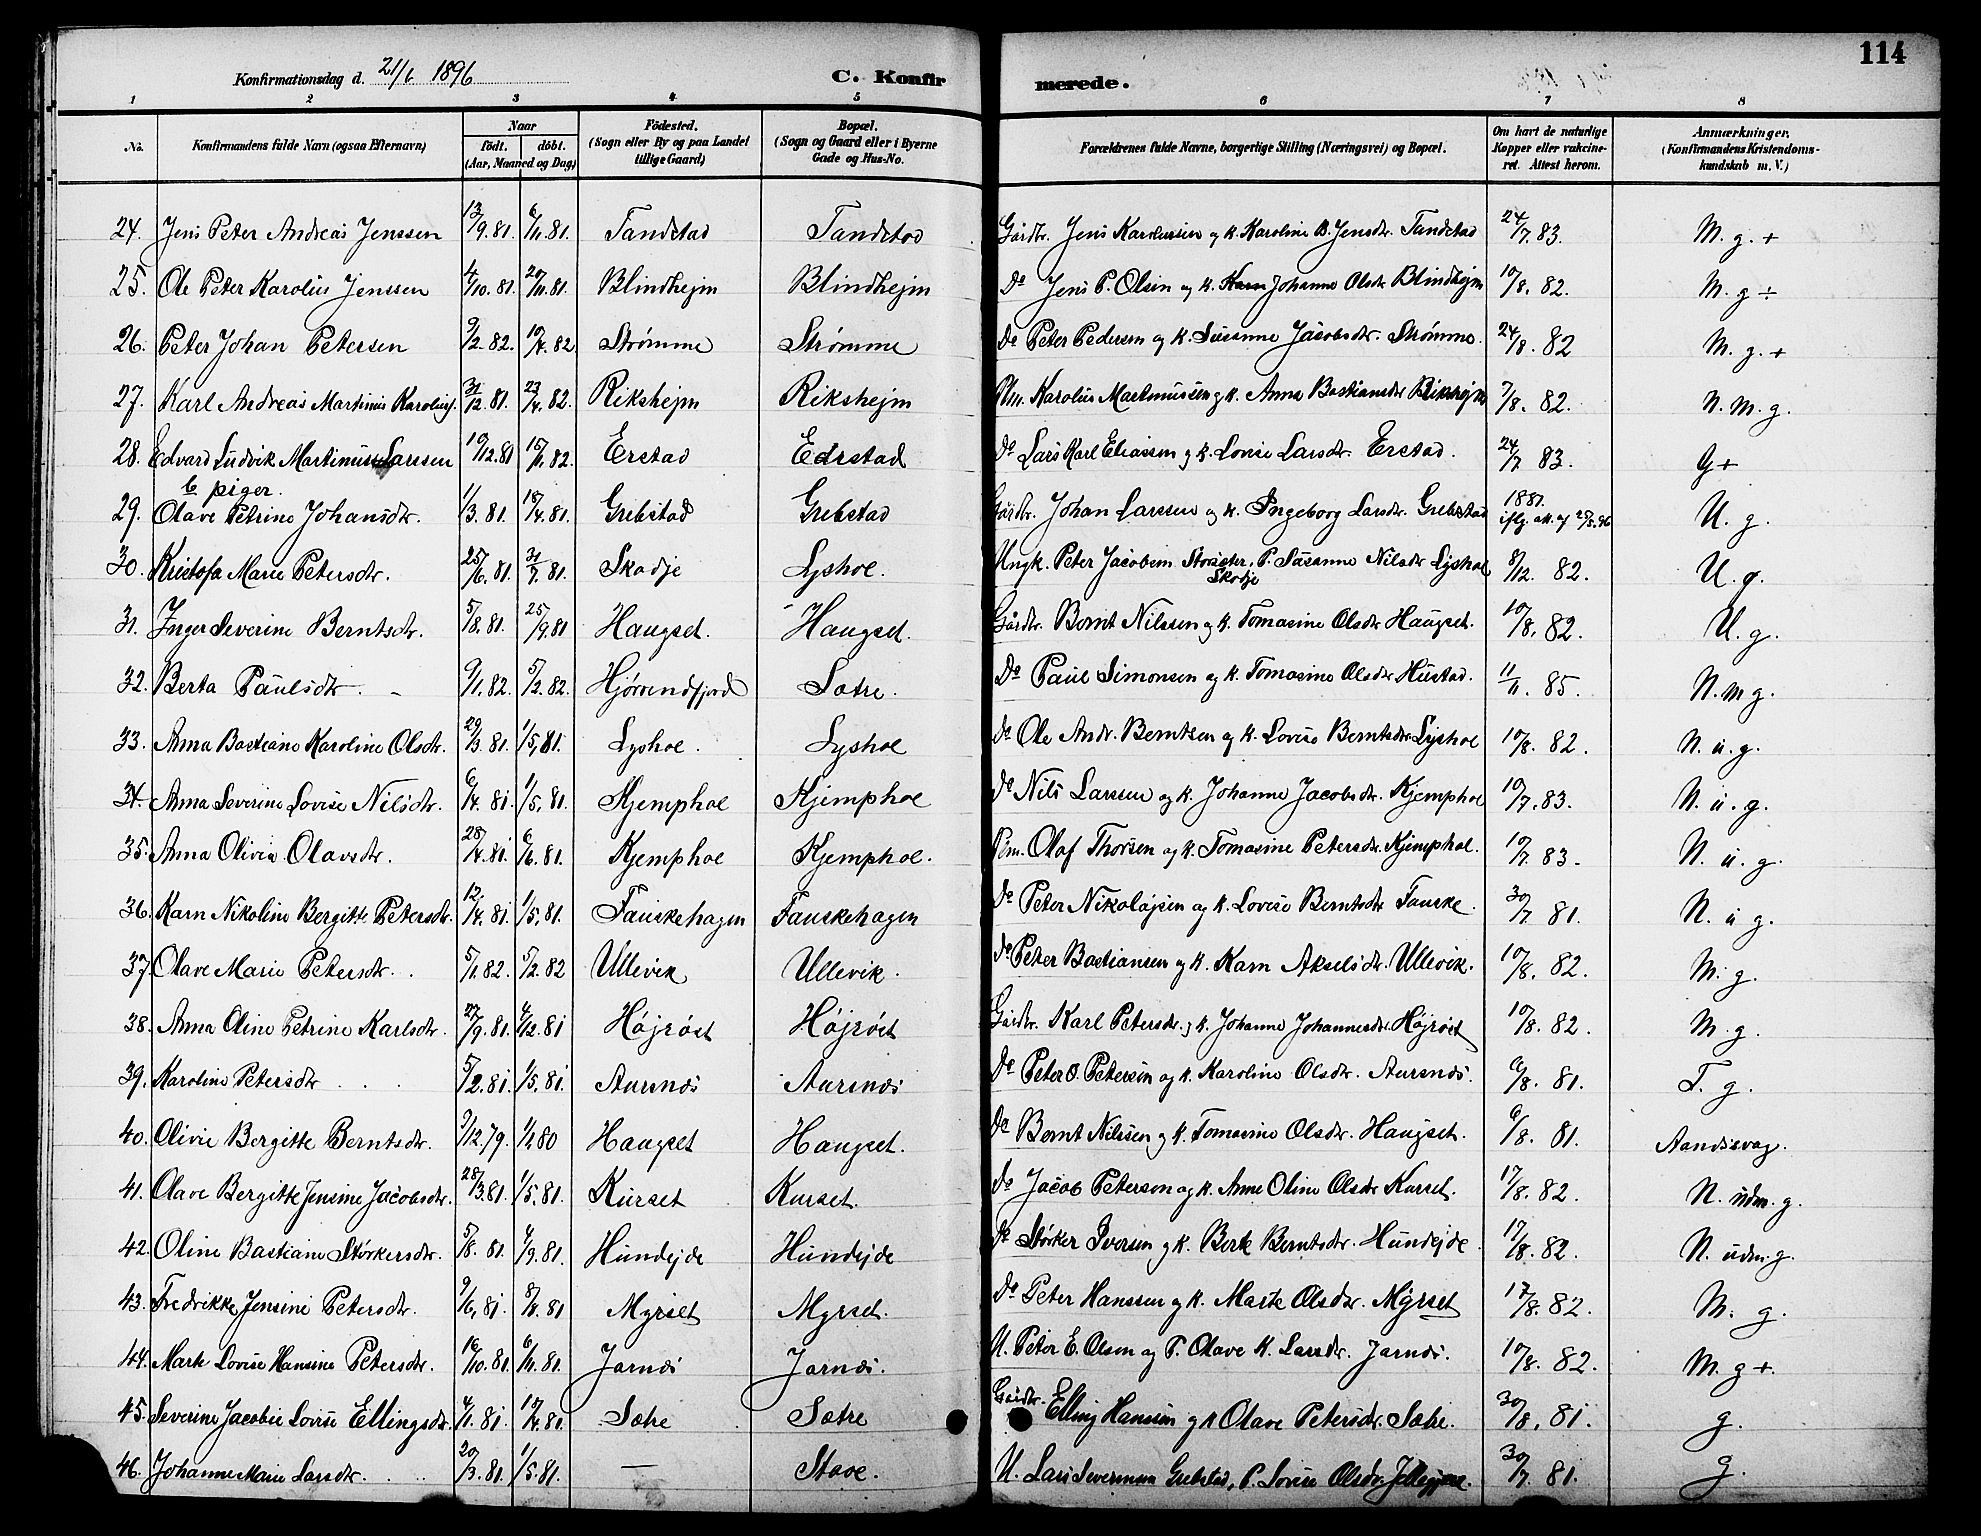 114
Konfirmationsdag d. 21/6 1896 C. Konfir merede.
1 2 3 4 5 6 7 8
No. Konfirmandens fulde Navn (ogsaa Efternavn) Naar født. døbt. (Aar, Maaned og Dag) Fødested. (Sogn eller By og paa Landet tillige Gaard) Bopæl. (Sogn og Gaard eller i Byerne Gade og Hus-No. Forældrenes fulde Navne, borgerlige Stilling (Næringsvei) og Bopæl. Om havt de naturlige Kopper eller vakcineret. Attest herom. Anmærkninger. (Konfirmandens Kristendomskundskab m. V.)
24. Jens Peter Andreas Jenssen 13/9.81. 6/11.81. Tandstad Tandstad Gårdbr. Jens Karolussen og K. Karoline B. Jensdtr. Tandstad 24/7.83. M. g. +
25. Ole Peter Karolus Jenssen 4/10.81. 20/11.81. Blindhejm Blindhejm Do Jens P. Olsen og K. Johanne Olsdtr Blindhejm 10/8.82. M. g ÷
26. Peter Johan Petersen 9/2.82. 10/4.82 Strømme Strømme Do Peter Pedersen og K. Susanne Jacobsdtr. Strømme. 24/8.82 M. g. +
27. Karl Andreas Martinus Karolusf. 31/12.81. 23/4.82. Rikshejm Rikshejm Plm. Karolus Martinussen og K. Anna Bastiansdtr Rikshejm 7/8.82. N. m. g.
28. Edvard Ludvik Martinus Larssen 10/12.81 15/1.82. Erstad Edrstad Do Lars Karl Eliassen og K. Lovise Larsdtr. Erstad. 24/7 83. G +
b piger.
29. Olave Petrine Johansdtr. 1/3.81. 18/4.81. Grebstad Grebstad Gårdbr. Johan Larssen og K. Ingeborg Larsdtr. Grebstad 1881. iflg. att. af 25/5.96 U. g.
30. Kristofa Marie Petersdtr. 25/6.81. 31/7.81. Skodje Lyshol. Ungk. Peter Jacobsen Storseter, P. Susanne Nilsdtr Lyshol 8/12. 82. U. g.
Skodje
31. Inger Severine Berntsdtr. 5/8.81. 25/9.81 Haugset. Haugset. Gårdbr. Bernt Nilssen og K. Tomasine Olsdtr Haugset. 10/8.82. U. g.
32. Berta Paulsdtr. 9/1.82. 5/2.82. Hjørrendfjord Satre. Do Paul Simonsen og K. Tomasine Olsdtr Hustad. 11/11. 85. N. m g.
33. Anna Bastiane Karoline Olsdtr. 29/3.81. 1/5.81. Lyshol. Lyshol Do Ole Andr. Berntsen og K. Lovise Berntsdtr Lyshol 10/8.82. N. u. g.
34. Anna Severine Lovise Nilsdtr. 6/4.81. 1/5.81. Kjemphol Kjemphol Do Nils Larssen og K. Johanne Jacobsdtr. Kjemphol 10/7.83. N. u. g.
35. Anna Olivia Olavsdtr. 28/4.81. 6/6.81. Kjemphol Kjemphol. Plm. Olaf Thorsen og K. Tomasine Petersdtr. Kjemphol. 10/7.83. N. u. g.
36. Karn Nikoline Bergitte Petersdtr. 12/4.81. 1/5.81. Fauskehagen Fauskehagen Do Peter Nikolajsen og K. Lovise Berntsdtr Fauske. 30/7 81. N. u g.
37. Olave Marie Petersdtr. 5/1.82. 5/2.82 Ullevik Ullevik. Do Peter Bastiansen og K. Karn Akselsdtr. Ullevik. 10/8.82. M. g.
38. Anna Oline Petrine Karlsdtr. 27/9.81. 4/12.81 Højrøst Højrøst Gårdbr. Karl Petersdtr. og K. Johanne Johannesdtr. Højrøst 10/8.82. M. g.
39. Karoline Petersdtr 5/2.81. 1/5.81. Aursnæs Aursnæs Do Peter O. Petersen og K. Karoline Olsdtr. Aursnæs. 6/8.81. T. g.
40. Olivie Bergitte Berntsdtr. 3/12.79. 1/1.80 Haugset Haugset. Do Bernt Nilssen og K. Tomasine Olsdtr. Haugset. 6/8.81. Aandssvag.
41. Olave Bergitte Jensine Jacobsdtr. 28/3.81. 1/5.81. Kurset Kurset. Do Jacob Peterson og K. Anne Oline Olsdtr Kurset. 17/8.82. N. udm. g.
42. Oline Bastiane Størkersdtr. 5/8.81. 4/9.81. Hundejde Hundejde Do Størker Iversen og K. Berte Berntsdtr. Hundejde. 17/8.82. N. udm. g.
43. Fredrikke Jensine Petersdtr. 9/6.81. 8/8.81 Myrset Myrset. Do Peter Hanssen og K. Marte Olsdtr. Myrset 17/8.82. M. g.
44. Marte Lovise Hansine Petersdtr. 16/10.81. 6/11.81. Jarnæs Jarnæs. U. Peter E. Olsen og P. Olave K. Larsdtr. Jarnæs. 10/8.82. M. g +.
45. Severine Jacobie Lovise Ellingsdtr. 4/1.81. 15/4.81. Satre Satre Gårdbr. Elling Hansen og K Olave Petersdtr. Satre. 30/8.81. g.
46. Johanne Marie Larsdtr. 20/3.81. 1/5.81. — Stave. U. Lars Severinsen Grebstad, P. Lovise Olsdtr. 30/7 81. g.